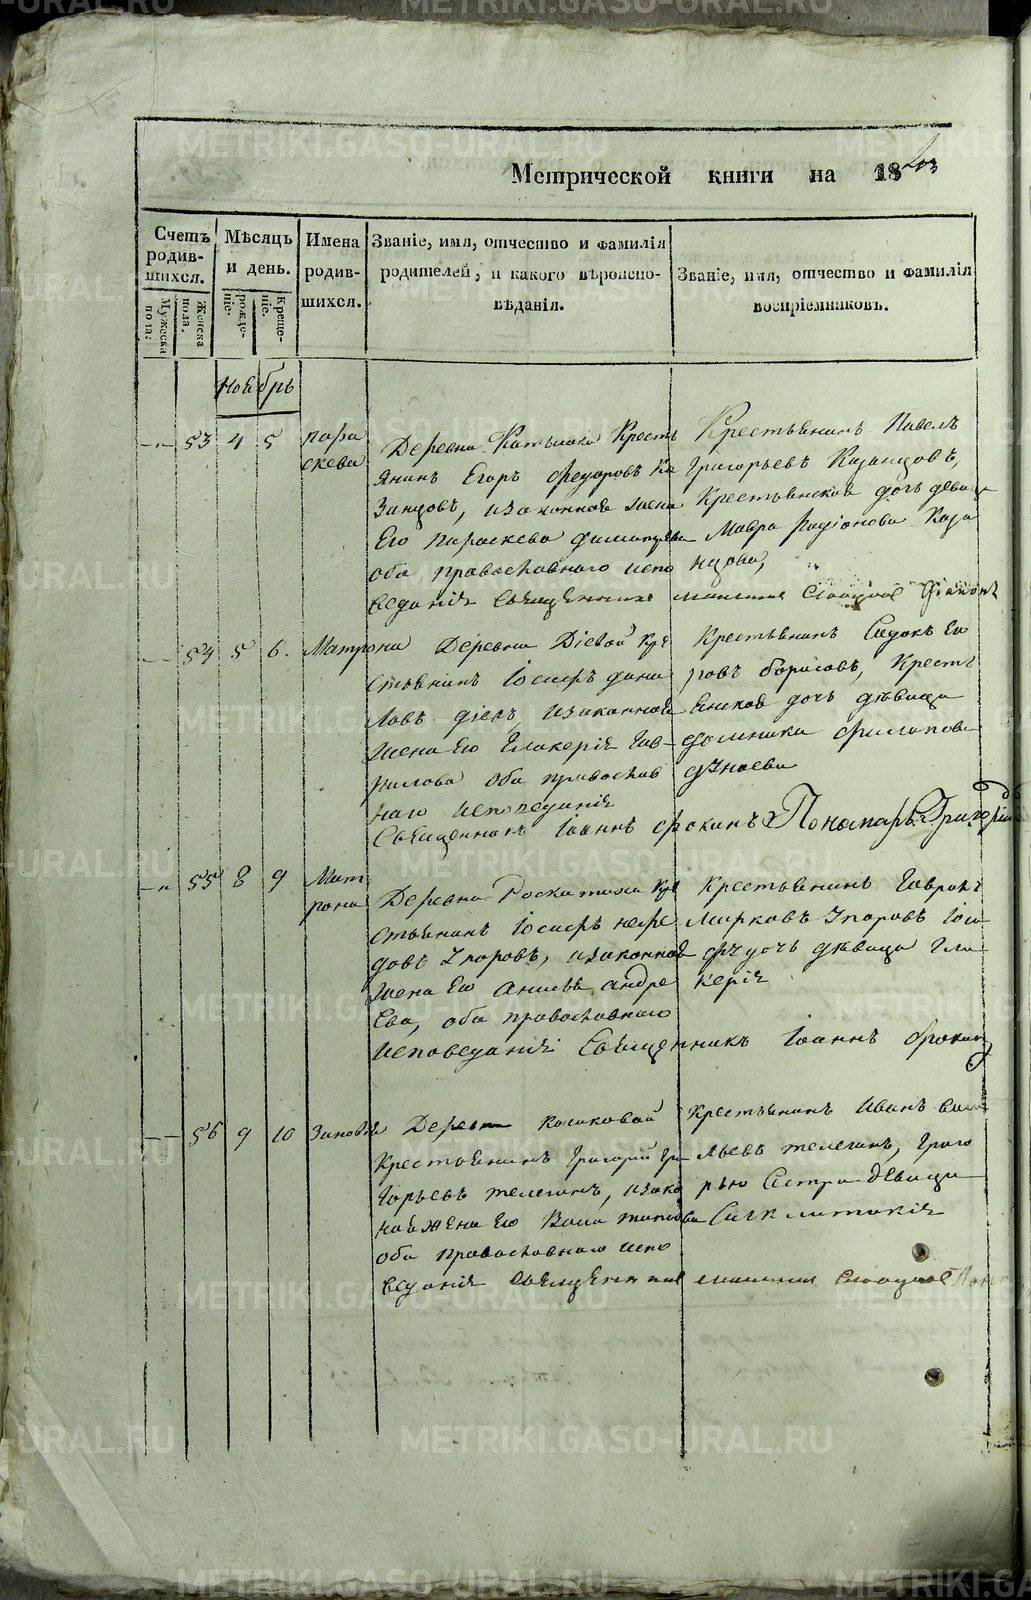 METRIKI.GASO-URAL.RU
Метрической книги на 18
Счетъ родив-шихся.
Мужеска пола:
Женска пола.
Мѣсяцъ и день.
рожде-ніе.
креще-ніе.
Имена родив-шихся.
Званіе, имя, отчество и фамилія
родителей, и какого вѣроиспо-
вѣданія.
Званіе, имя, отчество и фамилія
воспріемниковъ.
Ноябрь
53 4 5 пара
скева
Деревни Крестья
янинъ Егоръ Федоровъ Ка
занцовъ, и законная жена
Его Параскева
оба православнаго испо
веданія
Крестьянинъ Павелъ
Григорьевъ Казанцовъ,
Крестьянская дочь девица
Мавра Радіонова Каза
нцова,
54 5 6. Матрона
Деревни Діевой Кре
стьянинъ Іосифъ Дани
ловъ Діевъ, и законная
жена Его Гликерія Гав-
рилова оба православ
наго исповеданія
Священникъ Іоаннъ Фокинъ Пономарь Григорій
Крестьянинъ Сидоръ Его
ровъ Борисовъ, Кресть
янская дочь дѣвица
Домника Филипова
55 8 9 Мат
рона
Деревни Роскатиха Кре
стьянинъ Іосифъ Нефе
довъ Упоровъ, и законная
жена Его Анисья Андре
ева, оба православнаго
исповеданія Священникъ Іоаннъ Фокинъ
Крестьянинъ Гаврилъ
Мирковъ Упоровъ Іоси
фа дочь дѣвица Гли
керія
56 9 10 Зиновія
Деревни Косиковой
Крестьянинъ Григорій Гри
горьевъ Телегинъ, и зако
ная жена Его
оба православнаго испо
веданія
Крестьянинъ Иванъ Васи
льевъ Телегинъ, Григо
рью Сестра Девица
Сигклитикія